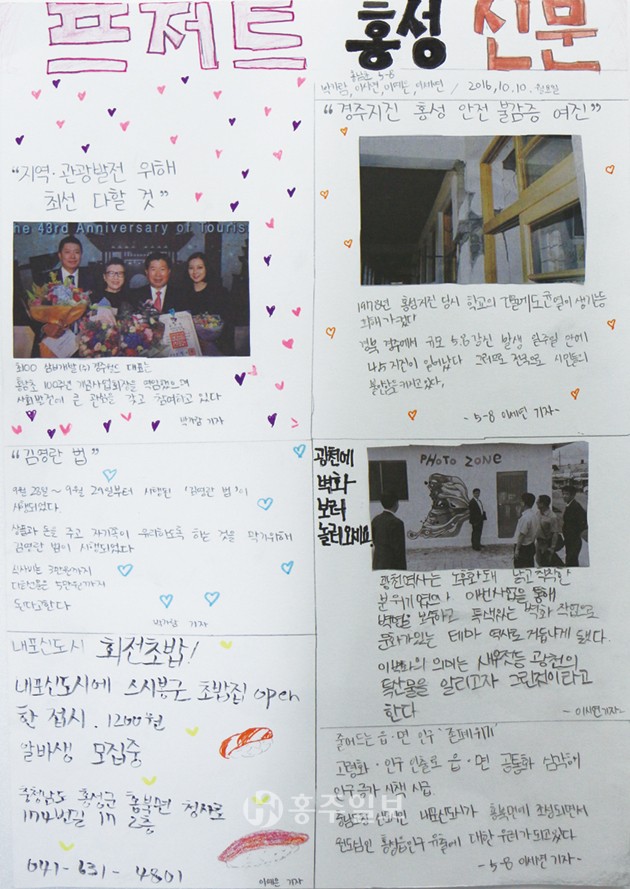 프젝트 홍성 신문
홍남초 5-8
2016.10.10. 월요일
"지역·관광발전 위해
최선 다할 것"
the 43rd Anniversary of Touris
대표는
홍남초 100주년 기념사업회장을 역임했으며
사회발전에 큰 관심을 갖고 참여하고 있다
기자
"김영란 법"
9월 28일~9월 29일부터 시행된 '김영란 법'이
시행되었다.
상품과 돈을 주고 자기쪽이 유리하도록 하는 것을 막기위해
김영란 법이 시행되었다
식사비는 3만원까지
다른선물은 5만원까지
된다고한다
기자
내포신도시 회전초밥!
내포신도시에 스시붕군 초밥집 open
한 접시. 1200원
알바생 모집중
충청남도 홍성군 홍북면 청사로
174번길 17 2층
041-631-4801
기자
"경주지진 홍성 안전 불감증 여진"
1978년 홍성지진 당시 학교의
경북 경주에서 규모 5.8 강진 발생 일주일 안에
지진이 일어났다 그러므로 전국으로 시민들의
불안감을 키우고있다.
-5-8 이세연 기자-
광천에
벽화
보러
놀러오세요.
PHOTO ZONE
광천역사는 노후화돼 낡고 칙칙한
분위기였으나 이번사업을 통해
벽면을 보수하고 특색있는 벽화 작업으로
문화가있는 테마 역사로 거듭나게 됐다.
이 벽화의 의미는 새우젓등 광천의
특산물을 알리고자 그린것이라고
한다
기자-
줄어드는 읍·면 인구 '존폐위기'
고령화·인구 인출로 읍·면 공동화 심각해
인구 증가 시책 시급.
내포신도시가 홍북면에 조성되면서
원도심인 홍성읍인구 유출에 대한 우려가 되고있다.
-5-8 이세연 기자-
홍주일보